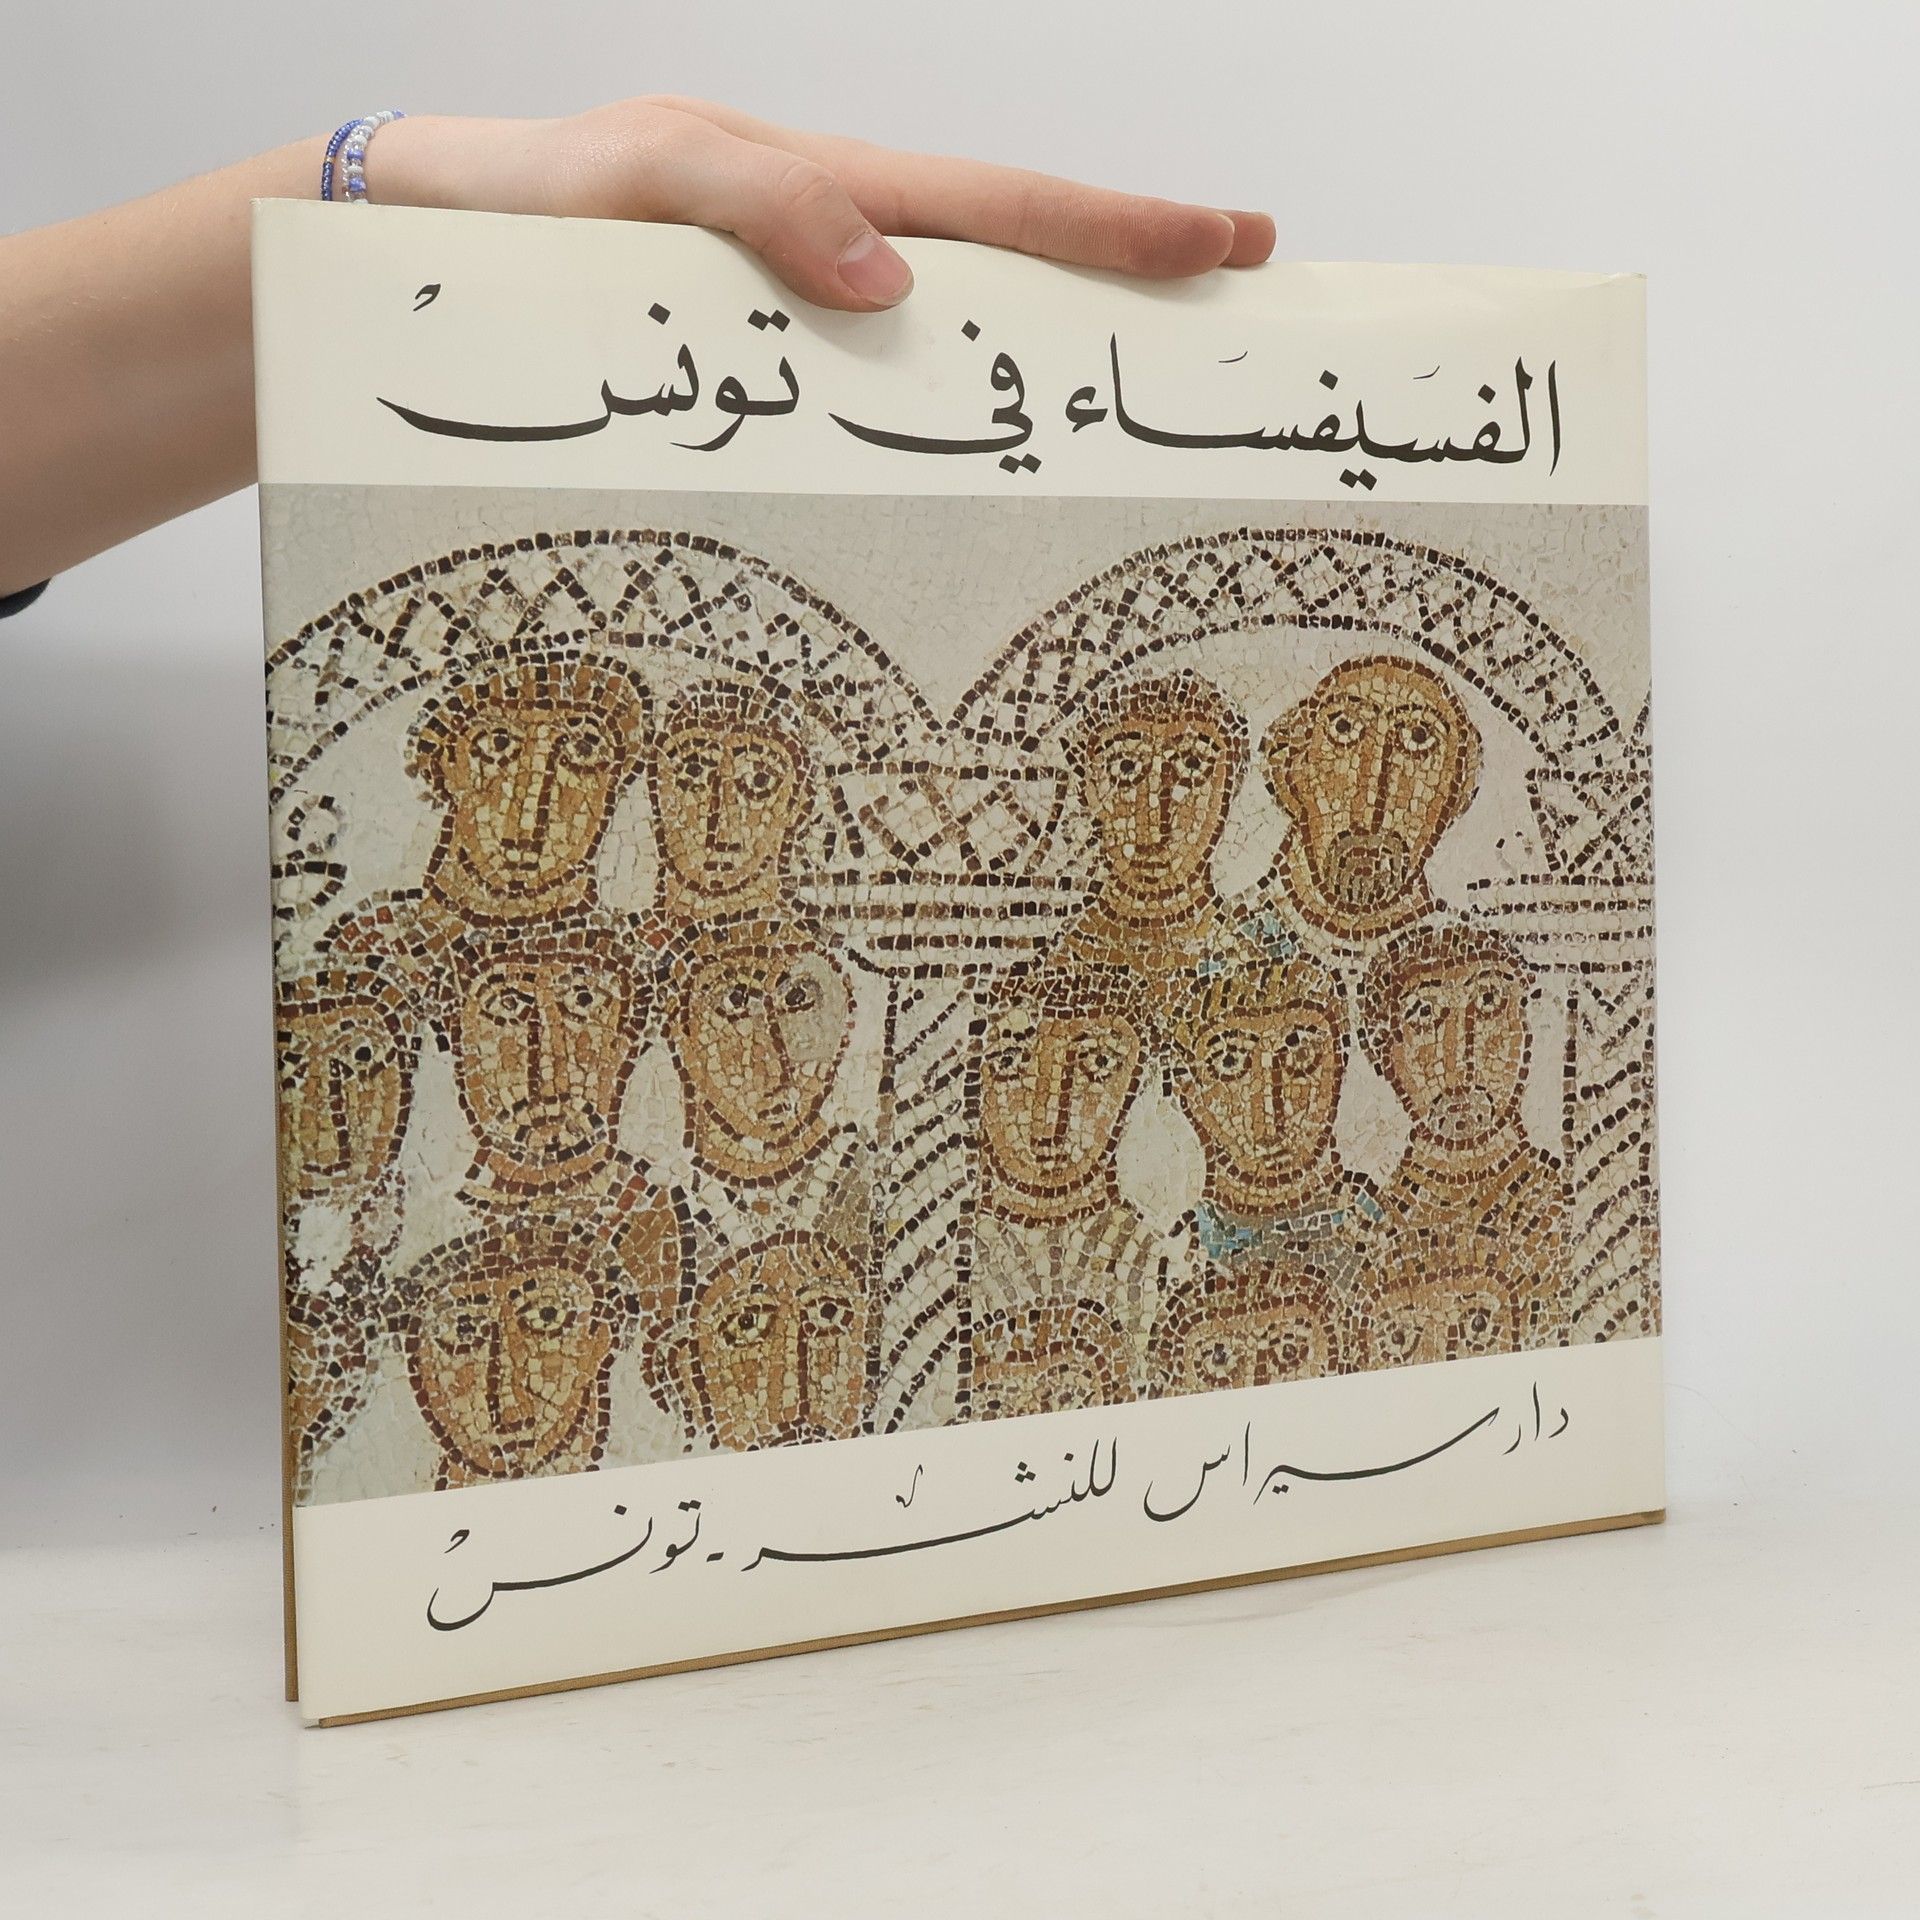 الفسَيفسَاء في تونسْ
دار سيراس للنشر - تونسْ